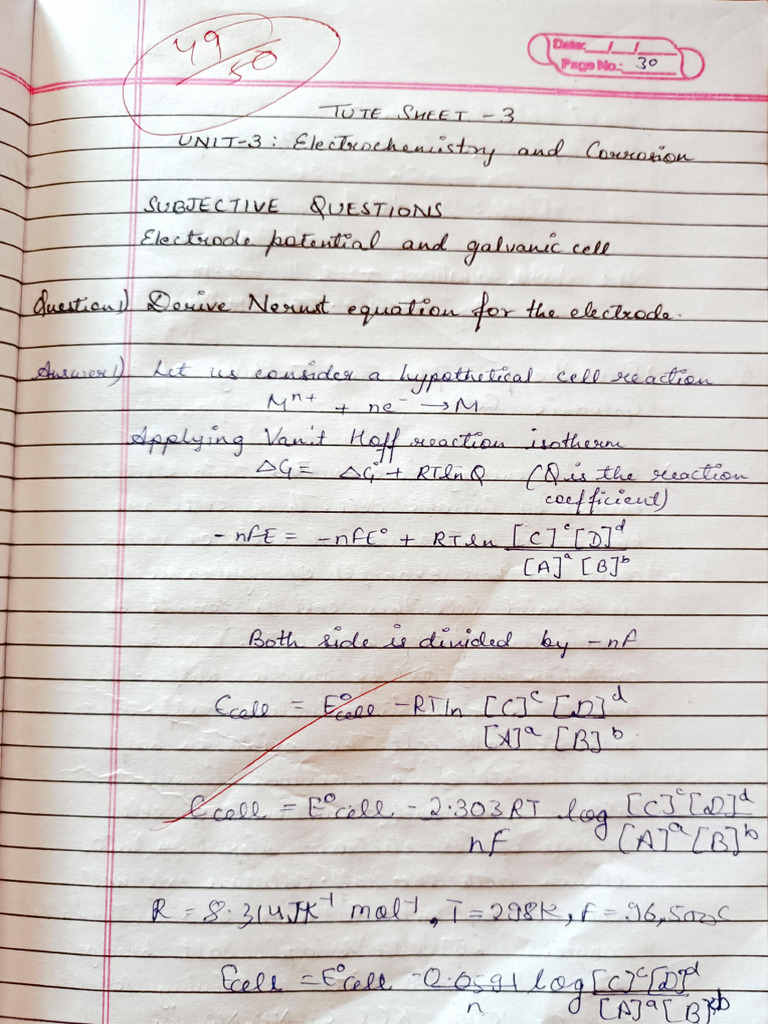 49/50
Date: __/__/__
Page No.: 30
TUTE SHEET - 3
UNIT-3: Electrochemistry and Corrosion
SUBJECTIVE QUESTIONS
Electrode potential and galvanic cell
Question 1) Derive Nernst equation for the electrode.
Answer 1) Let us consider a hypothetical cell reaction
Mⁿ⁺ + ne⁻ → M
Applying Van't Hoff reaction isotherm
ΔG = ΔG° + RTlnQ (Q is the reaction
coefficient)
-nFE = -nFE° + RT ln [C]ᶜ[D]ᵈ
[A]ᵃ [B]ᵇ
Both side is divided by -nF
Ecell = E°cell - RTln [C]ᶜ [D]ᵈ
[A]ᵃ [B]ᵇ
Ecell = E°cell - 2.303RT log [C]ᶜ[D]ᵈ
nF [A]ᵃ[B]ᵇ
R = 8.314JK⁻¹ mol⁻¹, T = 298K, F = 96,500C
Ecell = E°cell - 0.0591 log [C]ᶜ[D]ᵈ
n [A]ᵃ[B]ᵇ